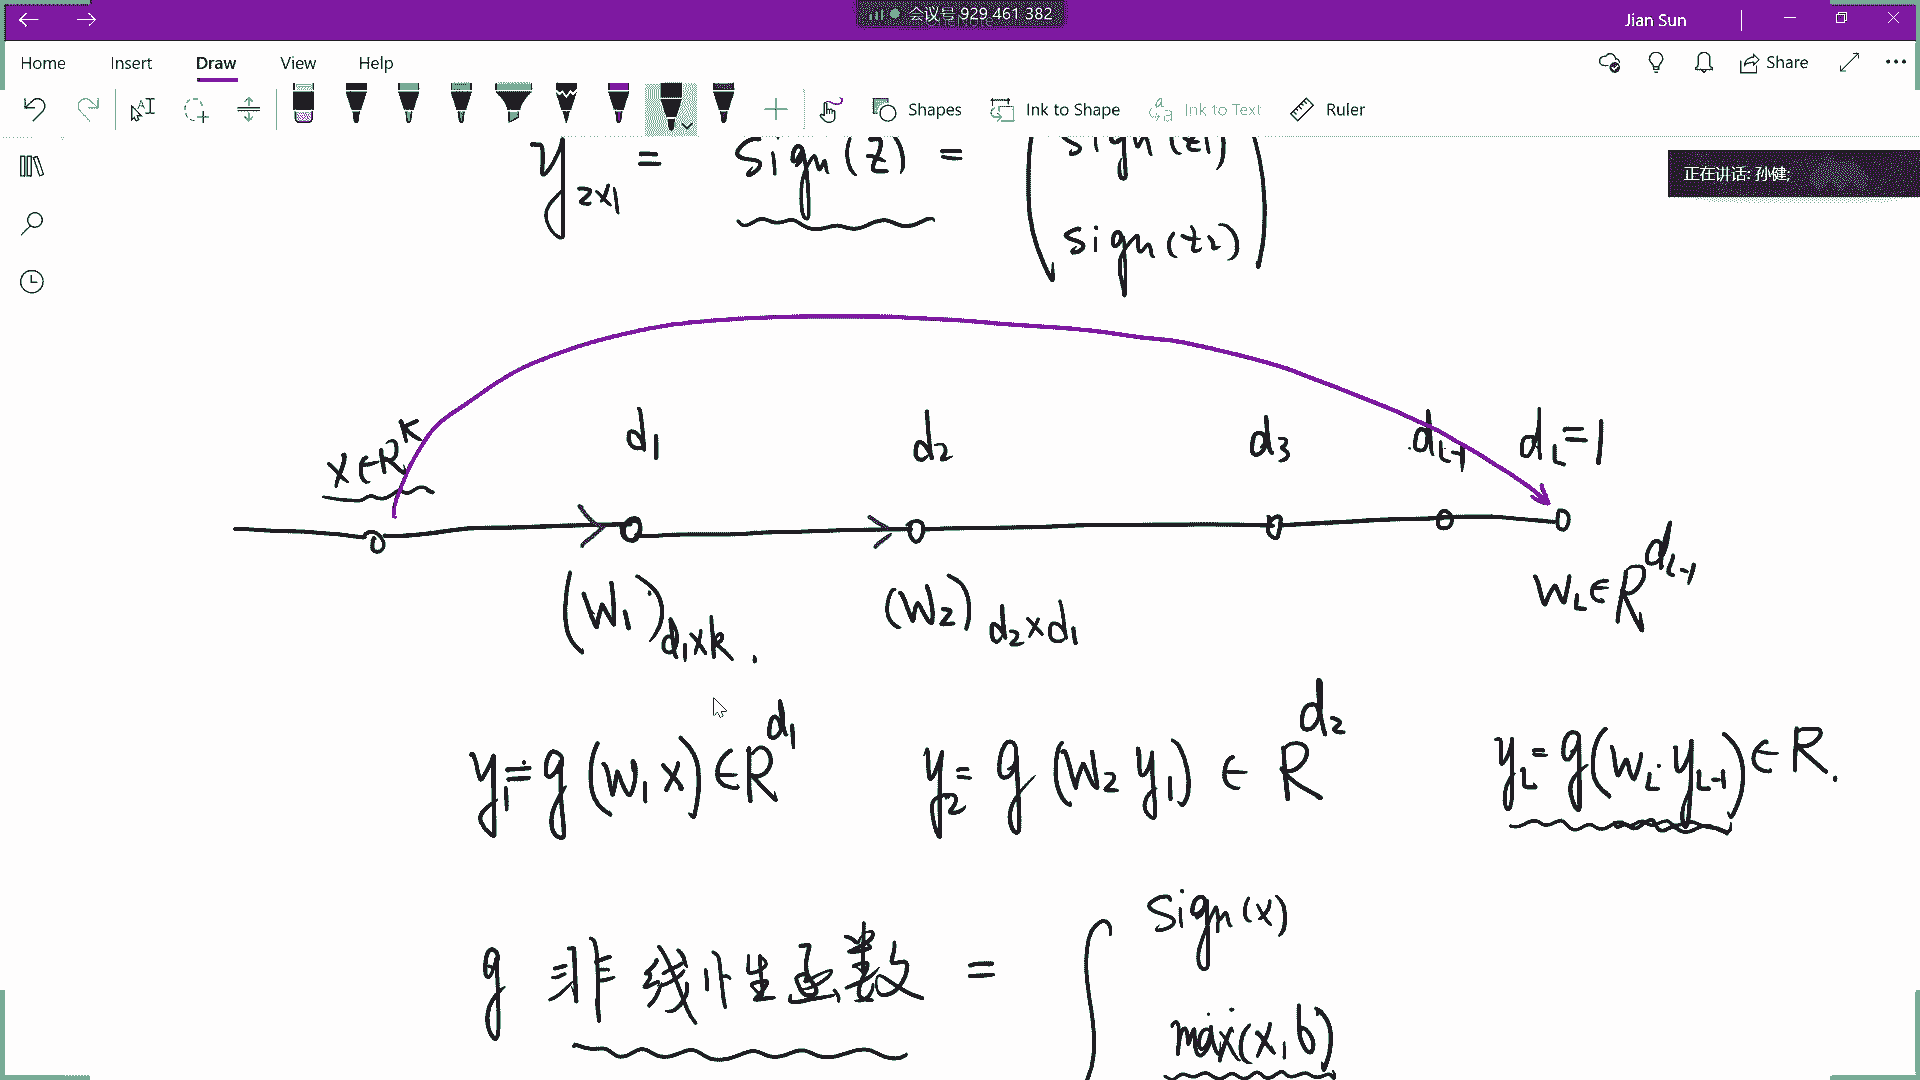 会议号 929 461 382
Jian Sun
Home Insert Draw View Help
Share
Shapes Ink to Shape Ink to Text Ruler
正在讲话: 孙健;
y 2x1 = sign(z) = ( sign(z1)
sign(z2) )
x∈R^k d1 d2 d3 d_{L-1} d_L=1
(W1)_{d1xk} . (W2)_{d2xd1} W_L∈R^{d_{L-1}}
y1=g(W1x)∈R^{d1} y2=g(W2y1)∈R^{d2} y_L=g(W_L·y_{L-1})∈R.
g 非线性函数 = { sign(x)
max(x,b)